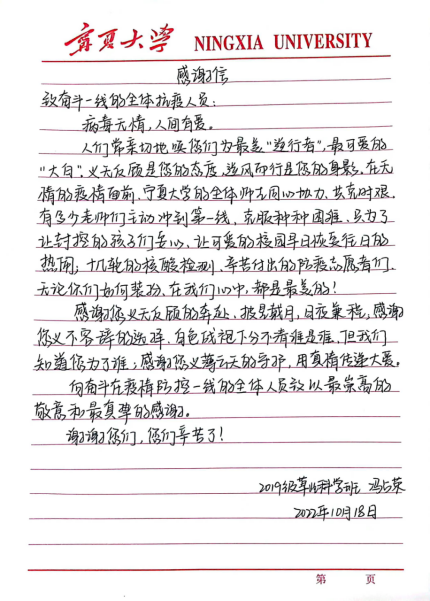 宁夏大学 NINGXIA UNIVERSITY
感谢信
致奋斗一线的全体抗疫人员：
病毒无情，人间有爱。
人们常亲切地唤你们为最美“逆行者”，最可爱的
“大白”，义无反顾是您的态度，逆风而行是您的身影。在无
情的疫情面前，宁夏大学的全体师生同心协力、共克时艰，
有多少老师们主动冲到第一线，克服种种困难，只为了
让封控的孩子们安心，让可爱的校园早日恢复往日的
热闹；十几轮的核酸检测，辛苦付出的防疫志愿者们，
无论你们如何装扮，在我们心中，都是最美的！
感谢您义无反顾的奔赴，披星戴月，日夜兼程；感谢
您义不容辞的选择，白色战袍下分不清谁是谁，但我们
知道您为了谁；感谢您义薄云天的守护，用真情传递大爱。
向奋斗在疫情防控一线的全体人员致以最崇高的
敬意和最真挚的感谢。
谢谢您们，您们辛苦了！
2019级草业科学班 冯占荣
2022年10月18日
第 页